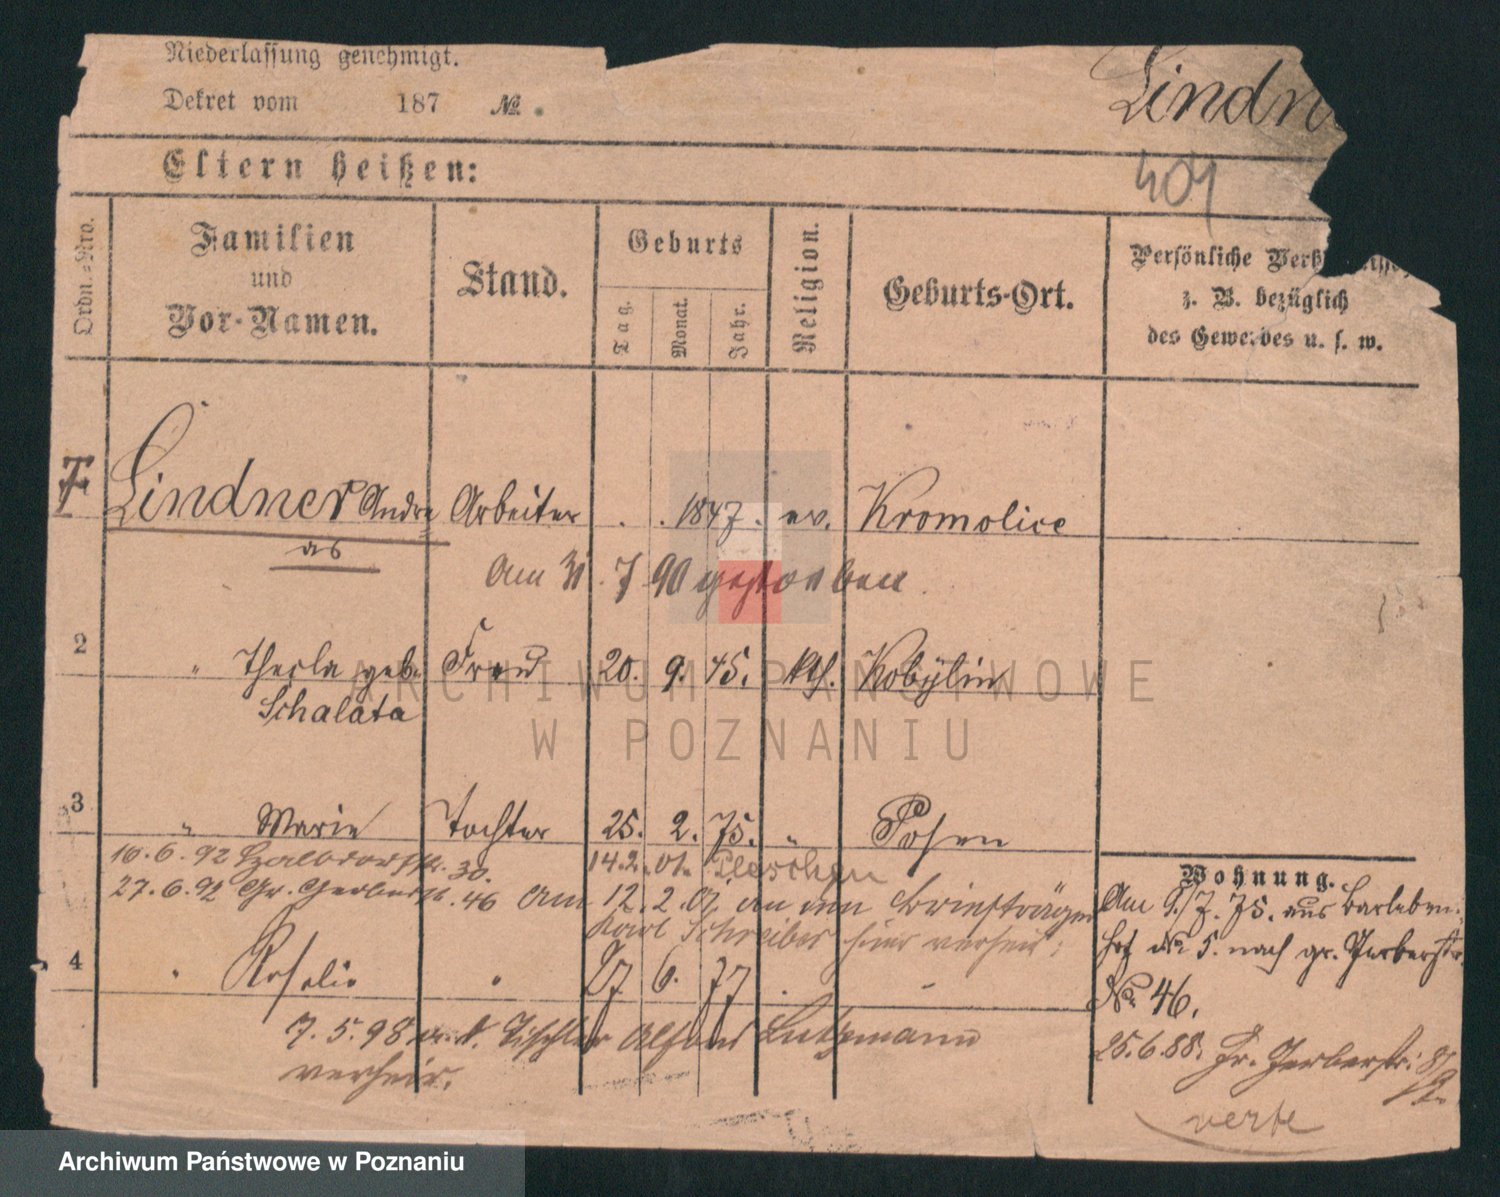 Niederlassung genehmigt.
Dekret vom 187 №.
Lindn
401
Eltern heißen:
Ordn.-Nro.
Familien
und
Vor-Namen.
Stand.
Geburts
Tag.
Monat.
Jahr.
Religion.
Geburts-Ort.
Persönliche
z. B. bezüglich
des Gewerbes u. s. w.
Lindner Andre Arbeiter . . 1847. ev. Kromolice
as
Am 31. 7 90 gestorben.
2 " Thecla geb. Frau 20. 9. 45. kth. Kobylin
Schalata
3 " Marie Tochter 25. 2. 75. " Posen
16.6.92 30. 14.2. 01. Pleschen
27.6.92 Gr. Gerberstr. 46 Am 12. 2. 07 an den Briefträger
Karl Schreiber hier verheir:
4 " Rosalie " 27 6. 77 . "
7. 5. 98 m. d. Tischler Lutzmann
verheir.
Wohnung.
Am 9./7. 75. aus
hof № 5. nach gr. Gerberstr.
No 46.
25.6.88. Gr. Gerberstr:
verte
ARCHIWUM PAŃSTWOWE
W POZNANIU
Archiwum Państwowe w Poznaniu